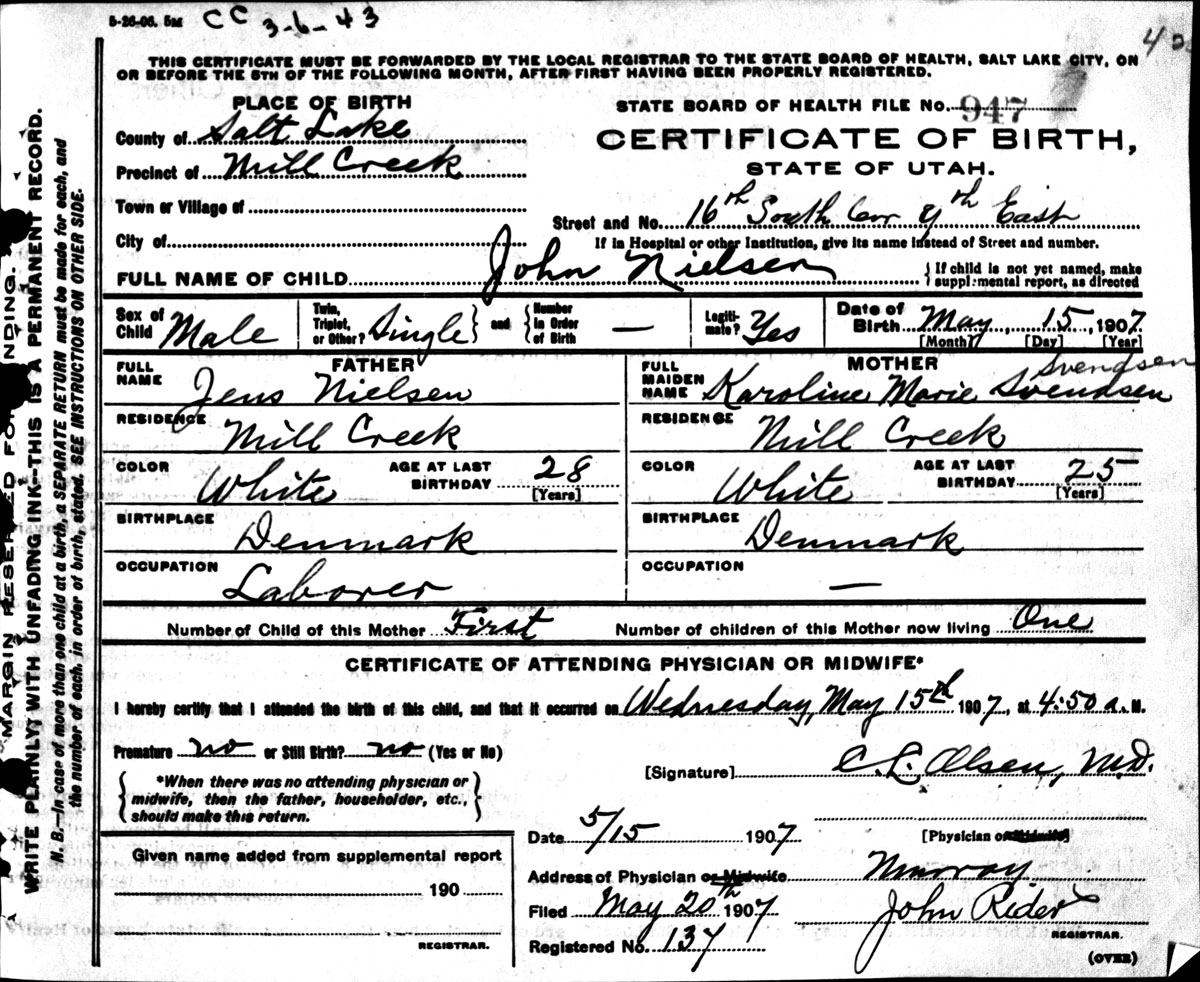 5-26-06. 5M CC 3-6-43
THIS CERTIFICATE MUST BE FORWARDED BY THE LOCAL REGISTRAR TO THE STATE BOARD OF HEALTH, SALT LAKE CITY, ON
OR BEFORE THE 5TH OF THE FOLLOWING MONTH, AFTER FIRST HAVING BEEN PROPERLY REGISTERED.
PLACE OF BIRTH
County of Salt Lake
Precinct of Mill Creek
Town or Village of
City of
STATE BOARD OF HEALTH FILE No. 947
CERTIFICATE OF BIRTH,
STATE OF UTAH.
Street and No. 16th South Cor 9th East
If in Hospital or other Institution, give its name instead of Street and number.
FULL NAME OF CHILD John Nielsen
{If child is not yet named, make
supplemental report, as directed
Sex of Child Male
Twin, Triplet, or Other? Single } and { Number in Order of Birth —
Legitimate? Yes
Date of Birth May 15, 1907
[Month] [Day] [Year]
FATHER
FULL NAME Jens Nielsen
RESIDENCE Mill Creek
COLOR White AGE AT LAST BIRTHDAY 28 [Years]
BIRTHPLACE Denmark
OCCUPATION Laborer
MOTHER Svendsen
FULL MAIDEN NAME Karoline Marie Svendsen
RESIDENCE Mill Creek
COLOR White AGE AT LAST BIRTHDAY 25 [Years]
BIRTHPLACE Denmark
OCCUPATION —
Number of Child of this Mother First Number of children of this Mother now living One
CERTIFICATE OF ATTENDING PHYSICIAN OR MIDWIFE*
I hereby certify that I attended the birth of this child, and that it occurred on Wednesday, May 15th 1907, at 4:50 a. M.
Premature no or Still Birth? no (Yes or No)
{*When there was no attending physician or
midwife, then the father, householder, etc.,
should make this return.}
[Signature] C. L. Olsen, M.D.
Date 5/15 1907 [Physician or Midwife]
Address of Physician or Midwife Murray
Filed May 20th 1907 John Rider
Registered No. 137 REGISTRAR.
(OVER)
Given name added from supplemental report
190
REGISTRAR.
MARGIN RESERVED FOR NDING.
WRITE PLAINLY WITH UNFADING INK—THIS IS A PERMANENT RECORD.
N. B.—In case of more than one child at a birth, a SEPARATE RETURN must be made for each, and
the number of each, in order of birth, stated. SEE INSTRUCTIONS ON OTHER SIDE.